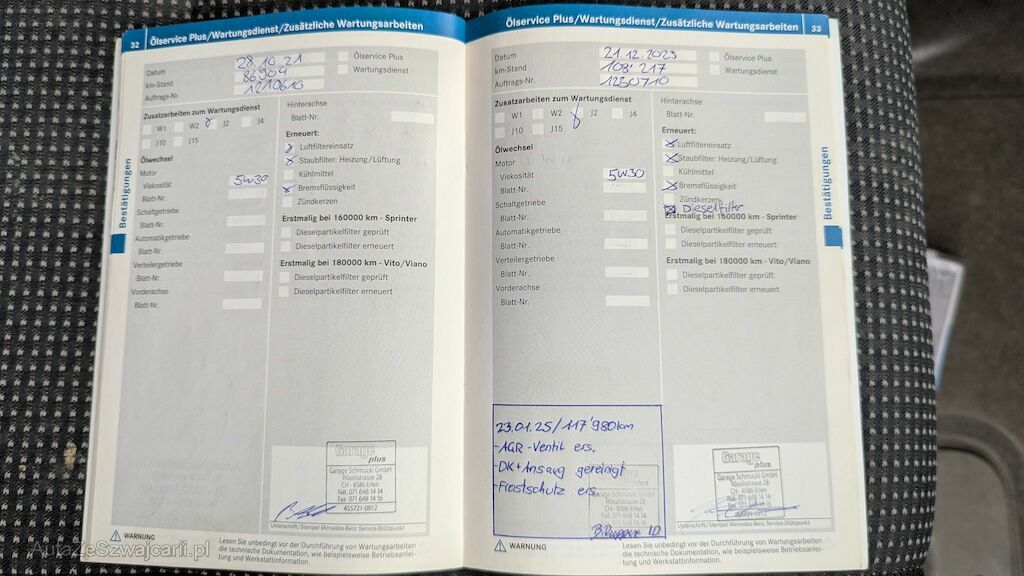 32 Ölservice Plus/Wartungsdienst/Zusätzliche Wartungsarbeiten
Datum 28.10.21
km-Stand 86904
Auftrags-Nr. 1210610
Ölservice Plus
Wartungsdienst
Zusatzarbeiten zum Wartungsdienst
W1 W2 J2 J4
J10 J15
Ölwechsel
Motor
Viskosität 5W30
Blatt-Nr.
Schaltgetriebe
Blatt-Nr.
Automatikgetriebe
Blatt-Nr.
Verteilergetriebe
Blatt-Nr.
Vorderachse
Blatt-Nr.
Hinterachse
Blatt-Nr.
Erneuert:
Luftfiltereinsatz
Staubfilter: Heizung/Lüftung
Kühlmittel
Bremsflüssigkeit
Zündkerzen
Erstmalig bei 160000 km - Sprinter
Dieselpartikelfilter geprüft
Dieselpartikelfilter erneuert
Erstmalig bei 180000 km - Vito/Viano
Dieselpartikelfilter geprüft
Dieselpartikelfilter erneuert
Bestätigungen
Garage plus
Garage Schmucki GmbH
Rösslistrasse 28
CH - 8586 Erlen
Nat. 071 648 14 14
Fax 071 648 14 16
455721-0912
Unterschrift/Stempel Mercedes-Benz Service-Stützpunkt
WARNUNG
Lesen Sie unbedingt vor der Durchführung von Wartungsarbeiten
die technische Dokumentation, wie beispielsweise Betriebsanlei-
tung und Werkstattinformation.
AutaZeSzwajcarii.pl
Ölservice Plus/Wartungsdienst/Zusätzliche Wartungsarbeiten 33
Datum 21.12.2023
km-Stand 108'217
Auftrags-Nr. 1230710
Ölservice Plus
Wartungsdienst
Zusatzarbeiten zum Wartungsdienst
W1 W2 J2 J4
J10 J15
Ölwechsel
Motor
Viskosität 5W30
Blatt-Nr.
Schaltgetriebe
Blatt-Nr.
Automatikgetriebe
Blatt-Nr.
Verteilergetriebe
Blatt-Nr.
Vorderachse
Blatt-Nr.
Hinterachse
Blatt-Nr.
Erneuert:
Luftfiltereinsatz
Staubfilter: Heizung/Lüftung
Kühlmittel
Bremsflüssigkeit
Zündkerzen
Dieselfilter
Erstmalig bei 160000 km - Sprinter
Dieselpartikelfilter geprüft
Dieselpartikelfilter erneuert
Erstmalig bei 180000 km - Vito/Viano
Dieselpartikelfilter geprüft
Dieselpartikelfilter erneuert
Bestätigungen
23.01.25/117'980km
-AGR-Ventil ers.
-DK+Ansaug gereinigt
-Frostschutz ers.
Garage plus
Garage Schmucki GmbH
Rösslistrasse 28
CH - 8586 Erlen
Nat. 071 648 14 14
Unterschrift/Stempel Mercedes-Benz Service-Stützpunkt
WARNUNG
Lesen Sie unbedingt vor der Durchführung von Wartungsarbeiten
die technische Dokumentation, wie beispielsweise Betriebsanlei-
tung und Werkstattinformation.